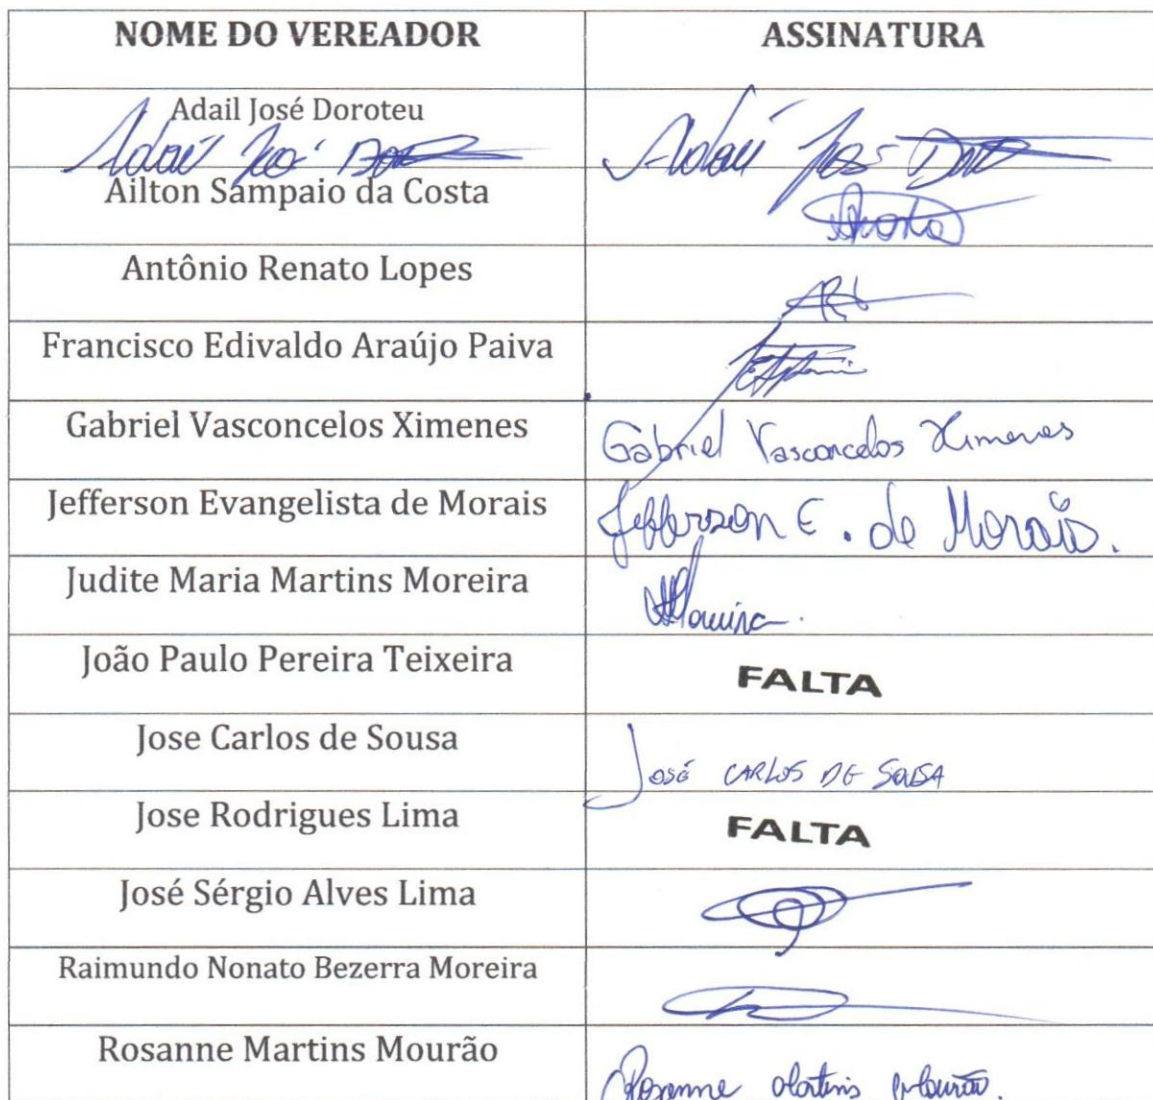 NOME DO VEREADOR ASSINATURA
Adail José Doroteu
Adail José Adail José
Ailton Sampaio da Costa
Antônio Renato Lopes ARL
Francisco Edivaldo Araújo Paiva
Gabriel Vasconcelos Ximenes Gabriel Vasconcelos Ximenes
Jefferson Evangelista de Morais Jefferson E. de Morais.
Judite Maria Martins Moreira
João Paulo Pereira Teixeira FALTA
Jose Carlos de Sousa JOSÉ CARLOS DE SOUSA
Jose Rodrigues Lima FALTA
José Sérgio Alves Lima
Raimundo Nonato Bezerra Moreira
Rosanne Martins Mourão Rosanne Martins Mourão.